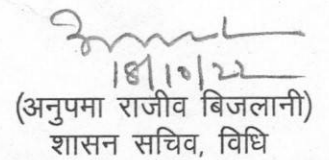 18/10/22
(अनुपमा राजीव बिजलानी)
शासन सचिव, विधि